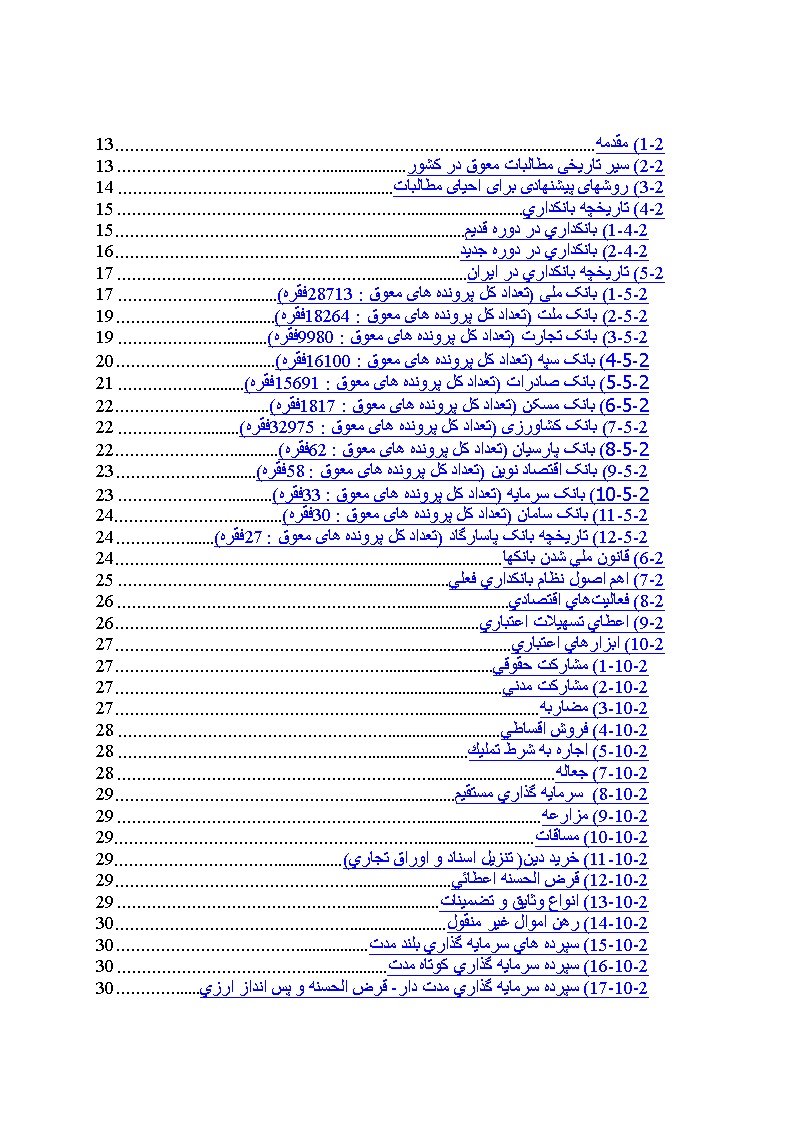 2-1) مقدمه 13
2-2) سیر تاریخی مطالبات معوق در کشور 13
2-3) روشهای پیشنهادی برای احیای مطالبات 14
2-4) تاریخچه بانکداري 15
2-4-1) بانکداري در دوره قدیم 15
2-4-2) بانکداري در دوره جدید 16
2-5) تاریخچه بانکداري در ایران 17
2-5-1) بانک ملی (تعداد کل پرونده های معوق : 28713فقره) 17
2-5-2) بانک ملت (تعداد کل پرونده های معوق : 18264فقره) 19
2-5-3) بانک تجارت (تعداد کل پرونده های معوق : 9980فقره) 19
2-5-4) بانک سپه (تعداد کل پرونده های معوق : 16100فقره) 20
2-5-5) بانک صادرات (تعداد کل پرونده های معوق : 15691فقره) 21
2-5-6) بانک مسکن (تعداد کل پرونده های معوق : 1817فقره) 22
2-5-7) بانک کشاورزی (تعداد کل پرونده های معوق : 32975فقره) 22
2-5-8) بانک پارسیان (تعداد کل پرونده های معوق : 62فقره) 22
2-5-9) بانک اقتصاد نوین (تعداد کل پرونده های معوق : 58فقره) 23
2-5-10) بانک سرمایه (تعداد کل پرونده های معوق : 33فقره) 23
2-5-11) بانک سامان (تعداد کل پرونده های معوق : 30فقره) 24
2-5-12) تاریخچه بانک پاسارگاد (تعداد کل پرونده های معوق : 27فقره) 24
2-6) قانون ملي شدن بانکها 24
2-7) اهم اصول نظام بانکداري فعلي 25
2-8) فعالیت‌هاي اقتصادي 26
2-9) اعطاي تسهیلات اعتباري 26
2-10) ابزارهاي اعتباري 27
2-10-1) مشارکت حقوقي 27
2-10-2) مشارکت مدني 27
2-10-3) مضاربه 27
2-10-4) فروش اقساطي 28
2-10-5) اجاره به شرط تملیك 28
2-10-7) جعاله 28
2-10-8) سرمایه گذاري مستقیم 29
2-10-9) مزارعه 29
2-10-10) مساقات 29
2-10-11) خرید دین( تنزیل اسناد و اوراق تجاري) 29
2-10-12) قرض الحسنه اعطائي 29
2-10-13) انواع وثایق و تضمینات 29
2-10-14) رهن اموال غیر منقول 30
2-10-15) سپرده هاي سرمایه گذاري بلند مدت 30
2-10-16) سپرده سرمایه گذاري کوتاه مدت 30
2-10-17) سپرده سرمایه گذاري مدت دار- قرض الحسنه و پس انداز ارزي 30